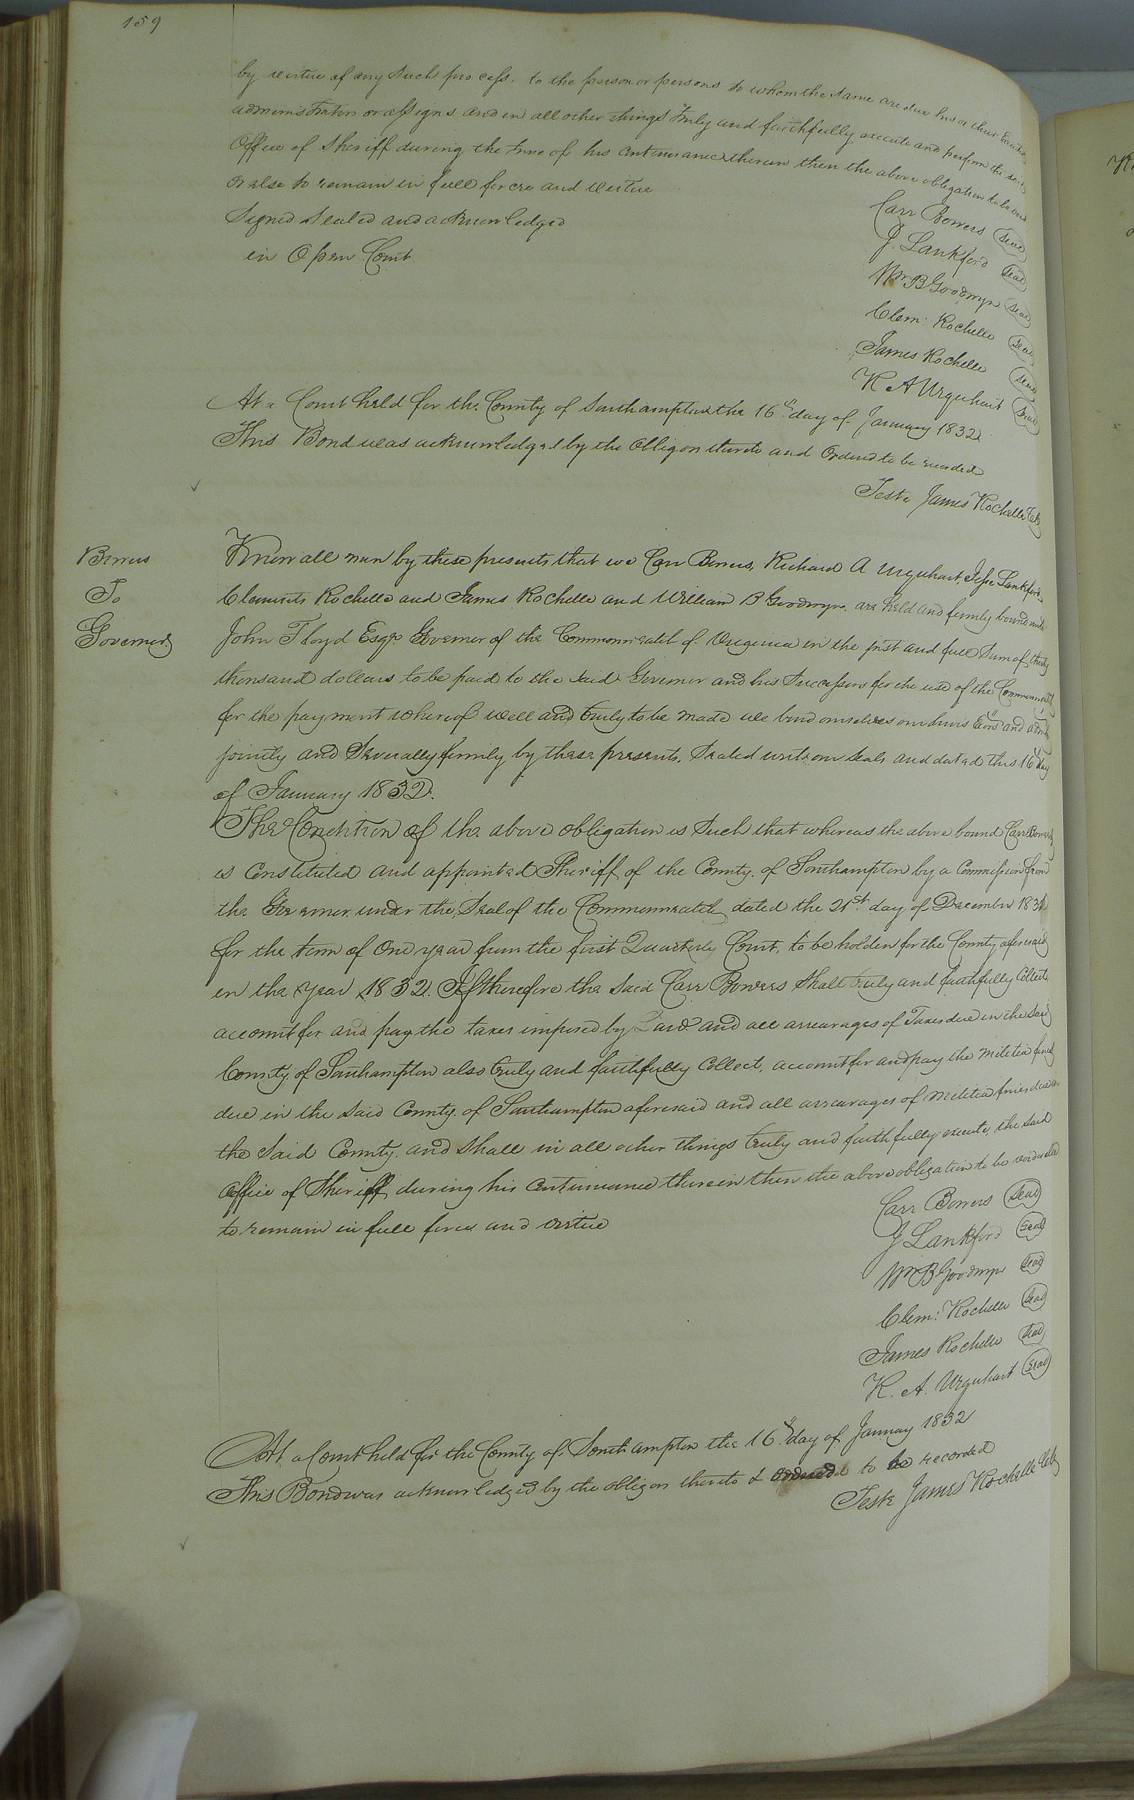 159
by virtue of any such process. to the person or persons to whom the same are due his or their
administrators or assigns and in all other things truly and faithfully execute and perform the said
Office of Sheriff during the time of his continuance therein then the above obligation to be void
or else to remain in full force and virtue
Signed Sealed and acknowledged
in Open Court
Carr Bowers Seal
J. Lankford Seal
Wm B Goodwyn Seal
Clem: Rochelle Seal
James Rochelle Seal
R A Urquhart Seal
At a Court held for the County of Southampton the 16th day of January 1832
This Bond was acknowledged by the Obligors thereto and Ordered to be recorded
Teste James Rochelle Clk
Bowers
To
Governor
Know all men by these presents that we Carr Bowers, Richard A Urquhart Jesse Lankford
Clements Rochelle and James Rochelle and William B Goodwyn are held and firmly bound unto
John Floyd Esqr. Governor of the Commonwealth of Virginia in the just and full Sum of thirty
thousand dollars to be paid to the said Governor and his Successors for the use of the Commonwealth
for the payment whereof well and truly to be made we bind ourselves our heirs Exors and admrs
jointly and Severally firmly by these presents. Sealed with our seals and dated this 16th day
of January 1832.
The Condition of the above obligation is Such that whereas the above bound Carr Bowers
is Constituted and appointed Sheriff of the County of Southampton by a Commission from
the Governor under the Seal of the Commonwealth dated the 21st day of December 1831
for the term of One year from the first Quarterly Court, to be holden for the County aforesaid
in the year 1832. If therefore the said Carr Bowers Shall truly and faithfully Collect
account for and pay the taxes imposed by Law and all arrearages of Taxes due in the said
County of Southampton also truly and faithfully Collect, account for and pay the militia fines
due in the said County of Southampton aforesaid and all arrearages of militia fines due in
the Said County. and Shall in all other things truly and faithfully execute, the said
Office of Sheriff during his Continuance therein then the above obligation to be void else
to remain in full force and virtue
Carr Bowers Seal
J Lankford Seal
Wm B Goodwyn Seal
Clem: Rochelle Seal
James Rochelle Seal
R. A. Urquhart Seal
At a Court held for the County of Southampton the 16th day of January 1832
This Bond was acknowledged by the obligors thereto & ordered to be recorded
Teste James Rochelle Clk